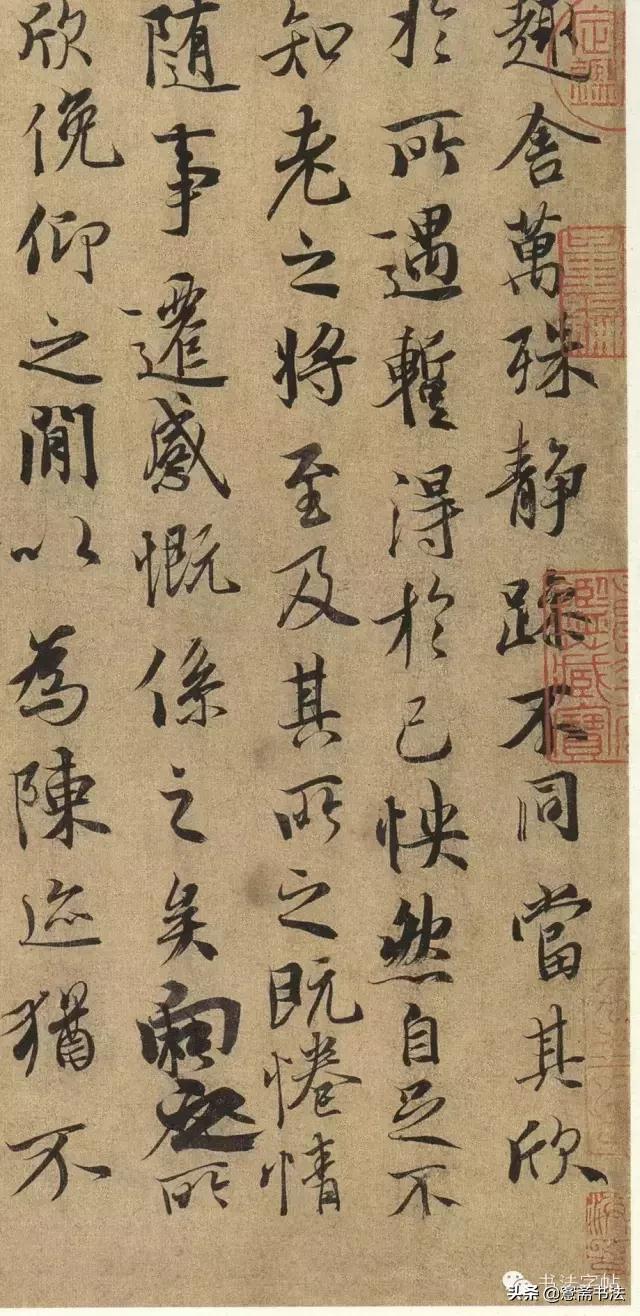 趣舍萬殊靜躁不同當其欣
於所遇蹔得於己怏然自足不
知老之將至及其所之既惓情
隨事遷感慨係之矣向之所
欣俛仰之閒以為陳迹猶不
书法字帖
头条 @斋书法